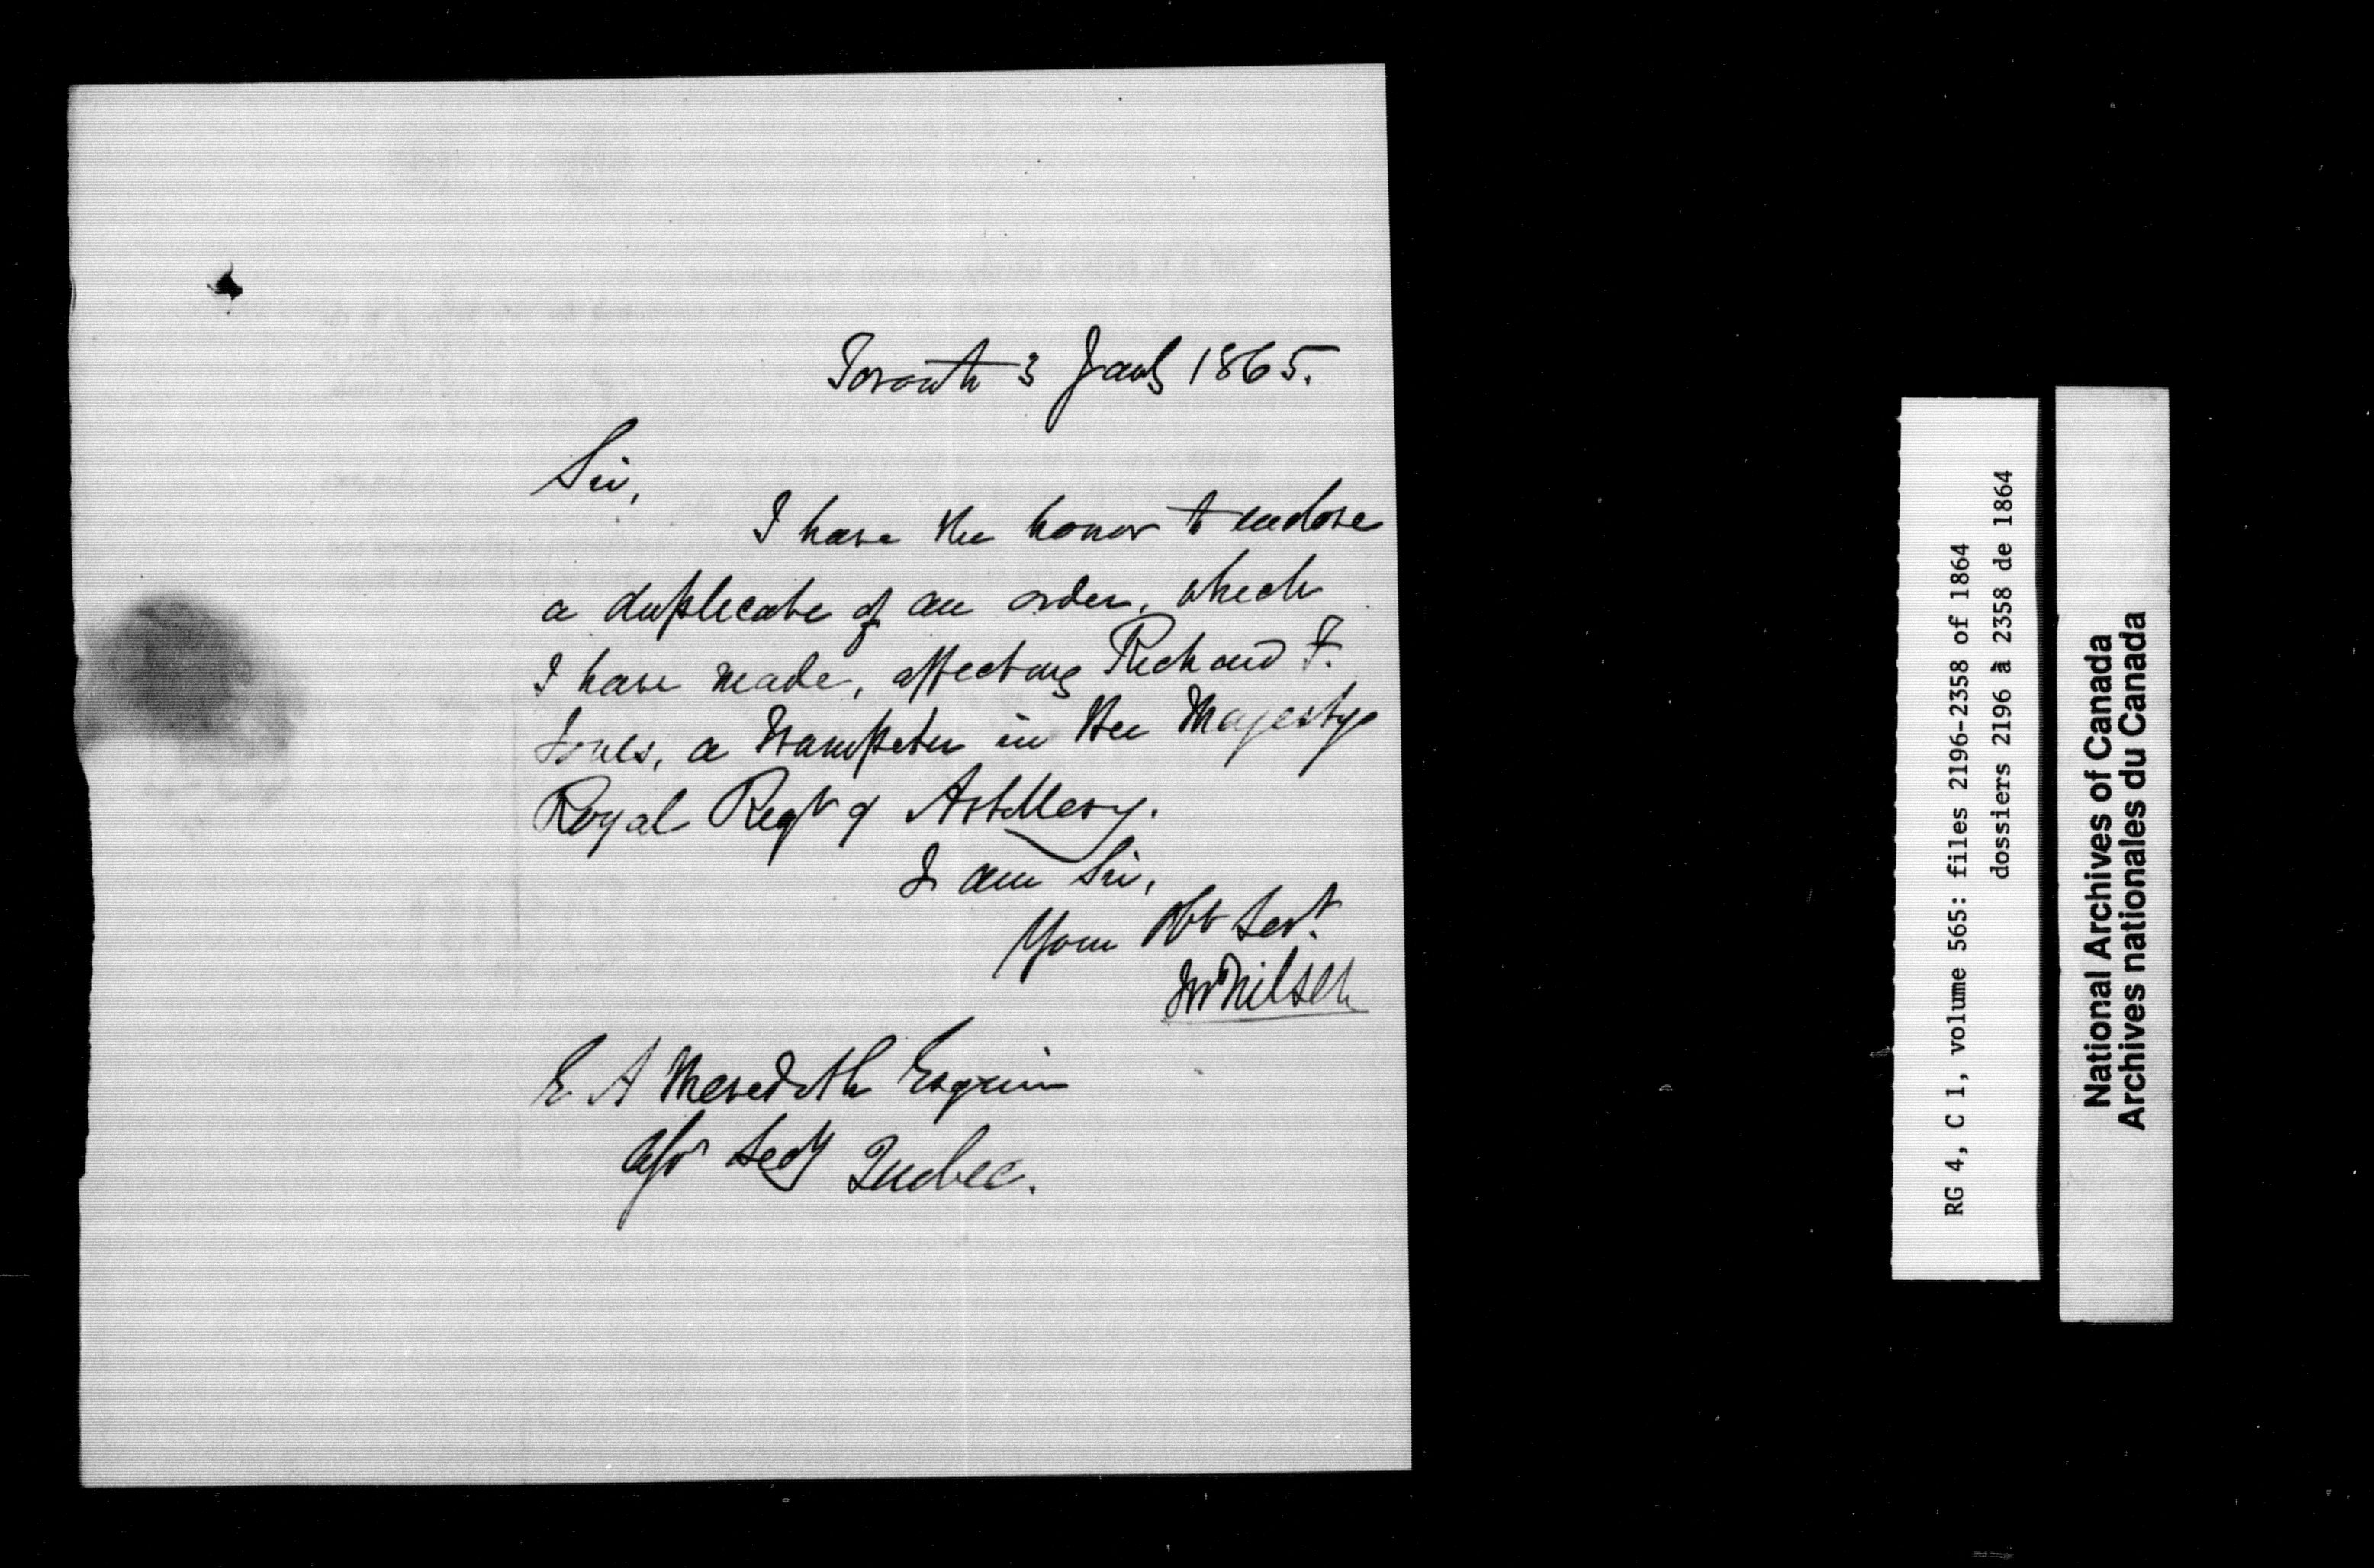 Toronto 3 Jany 1865.
Sir,
I have the honor to enclose
a duplicate of an order, which
I have made, affecting Richard F.
Jones, a Trumpeter in Her Majestys
Royal Regt of Artillery.
I am Sir,
Your Obt Sert.
E A Meredith Esquire
Asst Secy Quebec.
RG 4, C 1, volume 565: files 2196-2358 of 1864
dossiers 2196 à 2358 de 1864
National Archives of Canada
Archives nationales du Canada